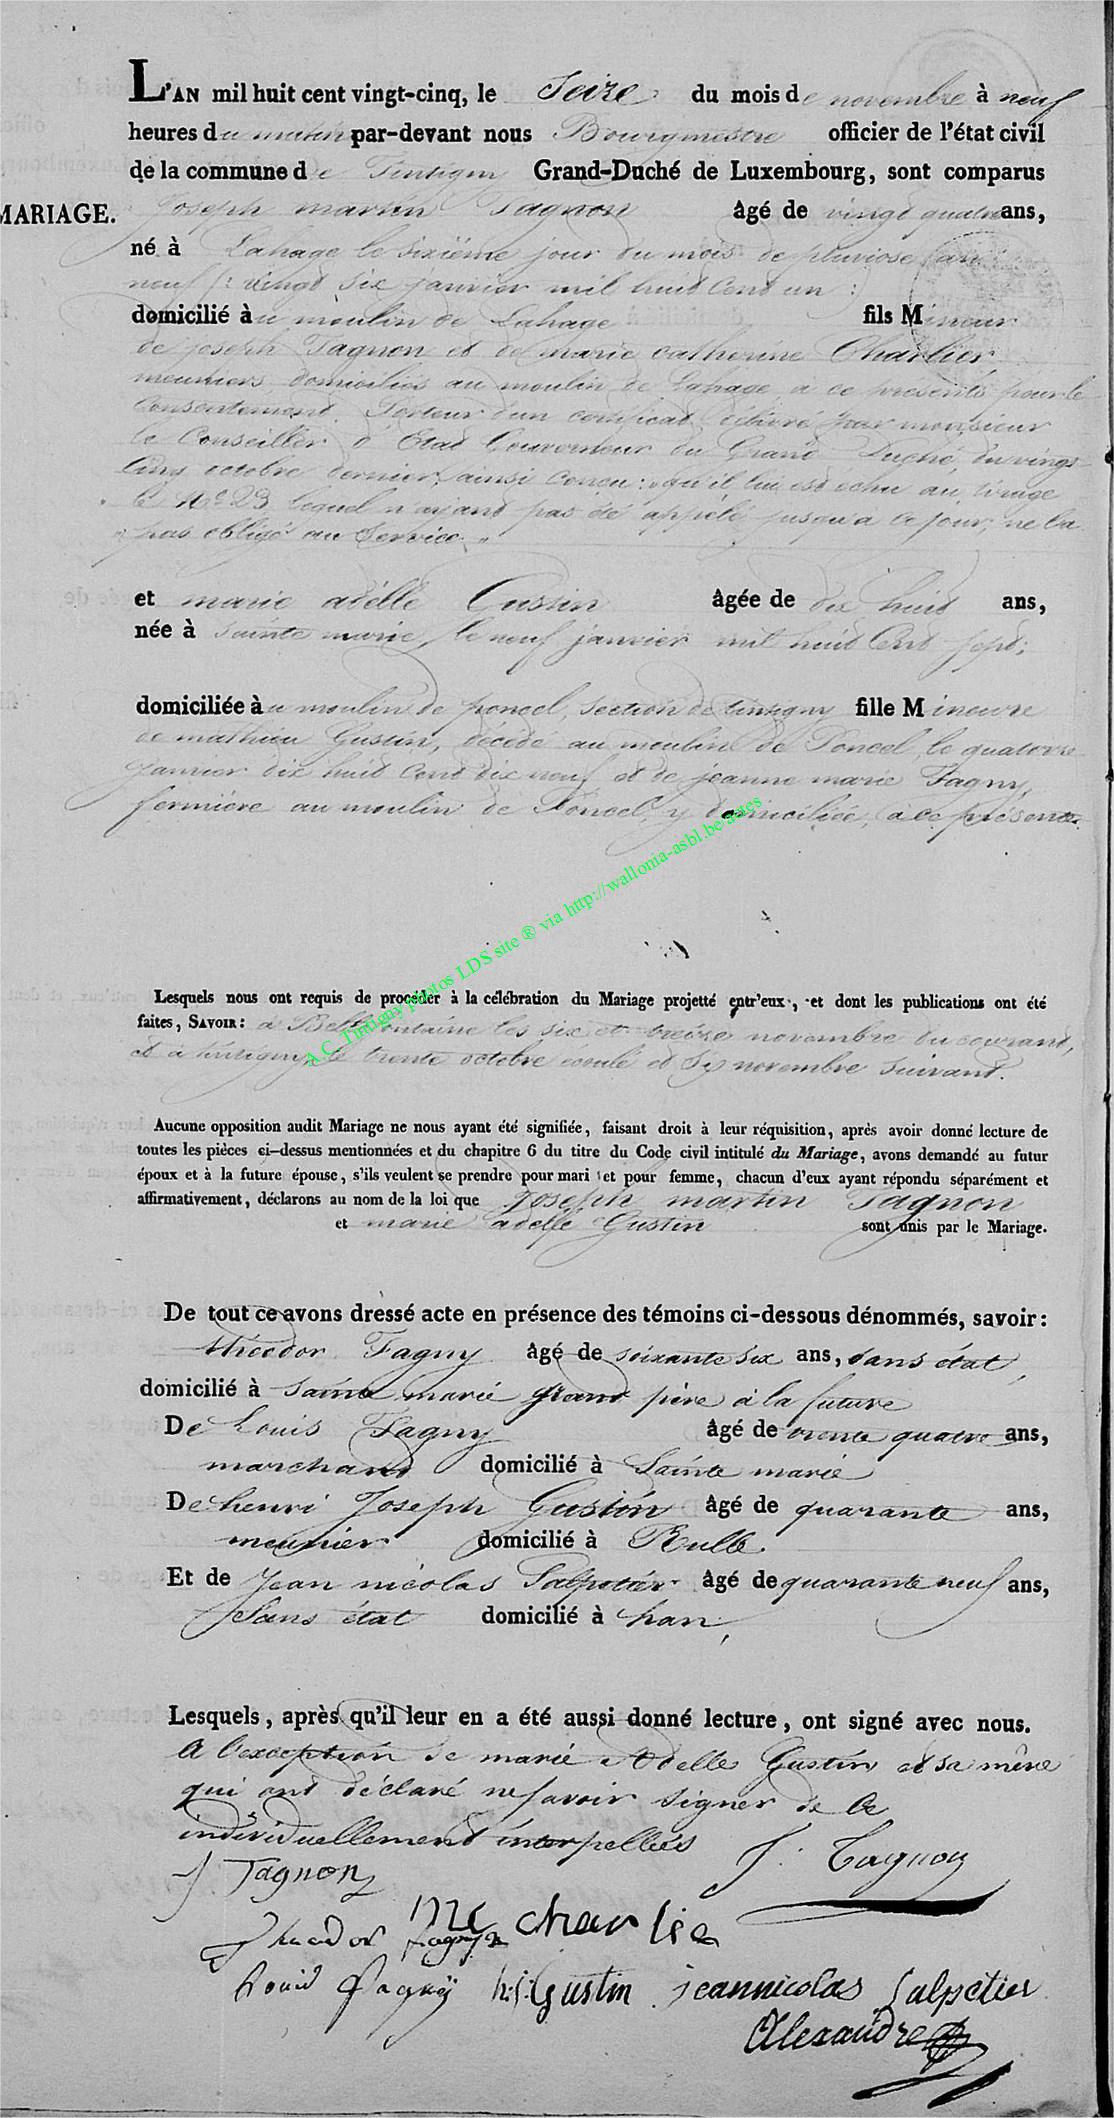 L'AN mil huit cent vingt-cinq, le Seize du mois de novembre à neuf
heures du matin par-devant nous Bourgmestre officier de l'état civil
de la commune de Tintigny Grand-Duché de Luxembourg, sont comparus
MARIAGE. Joseph martin Tagnon âgé de vingt quatre ans,
né à Lahage le sixième jour du mois de pluviose an
neuf /: vingt six janvier mil huit Cent un :
domicilié au moulin de Lahage fils Mineur
de joseph Tagnon et de marie catherine Charlier,
meuniers domiciliés au moulin de Lahage, à ce présents pour le
Consentement. Porteur d'un certificat délivré par monsieur
le Conseiller d'Etat Gouverneur du Grand Duché, du vingt
Cinq octobre dernier, ainsi concu: "qu'il lui est echu au tirage
le No 23 lequel n'ayant pas été appélé jusqu'à ce jour, ne l'a
" pas obligé au Service. "
et marie adélle Gustin âgée de dix huit ans,
née à Sainte marie, le neuf janvier mil huit Cent sept;
domiciliée au moulin de poncel, section de tintigny fille Mineure
de mathieu Gustin, décédé au moulin de Poncel, le quatorze
janvier dix huit Cent dix neuf et de jeanne marie Fagny,
fermière au moulin de Poncel, y domiciliée, à ce présente.
A.C. Tintigny photos LDS site ® via http://wallonia-asbl.be/actes
Lesquels nous ont requis de procéder à la célébration du Mariage projetté entr'eux, et dont les publications ont été
faites, SAVOIR: à Bellefontaine les six et treize novembre du courant,
et à tintigny, le trente octobre écoulé et Six novembre suivant.
Aucune opposition audit Mariage ne nous ayant été signifiée, faisant droit à leur réquisition, après avoir donné lecture de
toutes les pièces ci-dessus mentionnées et du chapitre 6 du titre du Code civil intitulé du Mariage, avons demandé au futur
époux et à la future épouse, s'ils veulent se prendre pour mari et pour femme, chacun d'eux ayant répondu séparément et
affirmativement, déclarons au nom de la loi que Joseph martin Tagnon
et marie adelle Gustin sont unis par le Mariage.
De tout ce avons dressé acte en présence des témoins ci-dessous dénommés, savoir:
théodor Fagny âgé de soixante six ans, sans état,
domicilié à Sainte marie grand père à la future
De Louis Fagny âgé de trente quatre ans,
marchand domicilié à Sainte marie
De henri Joseph Gustin âgé de quarante ans,
meunier domicilié à Rulle.
Et de Jean nicolas Salpetier âgé de quarante neuf ans,
Sans état domicilié à han,
Lesquels, après qu'il leur en a été aussi donné lecture, ont signé avec nous.
A l'exception de marie Adelle Gustin et sa mère
qui ont déclaré ne savoir signer de Ce
individuellement interpellés J. Tagnon
J Tagnon
MC charlie
Theodor fagny
Louis fagny h:j: Gustin jeannicolas Salpetier
Alexandre